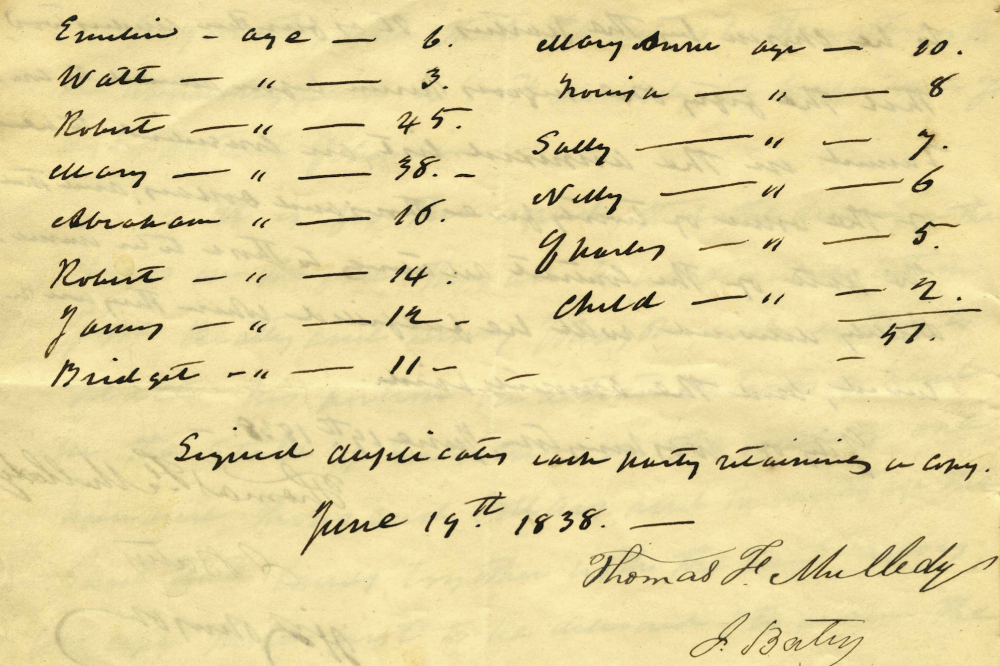 Emeline - age — 6.
Watt — " — 3.
Robert — " — 45.
Mary — " — 38. -
Abraham " — 16.
Robert — " — 14.
James — " — 12 -
Bridget -" — 11 -
Mary Anne age — 10.
Louisa — " — 8
Sally — " — 7.
Nelly — " — 6
Charles — " — 5.
Child — " — 2.
— 51.
Signed duplicates each party retaining a copy.
June 19th. 1838. —
Thomas F. Mulledy
J. Batey